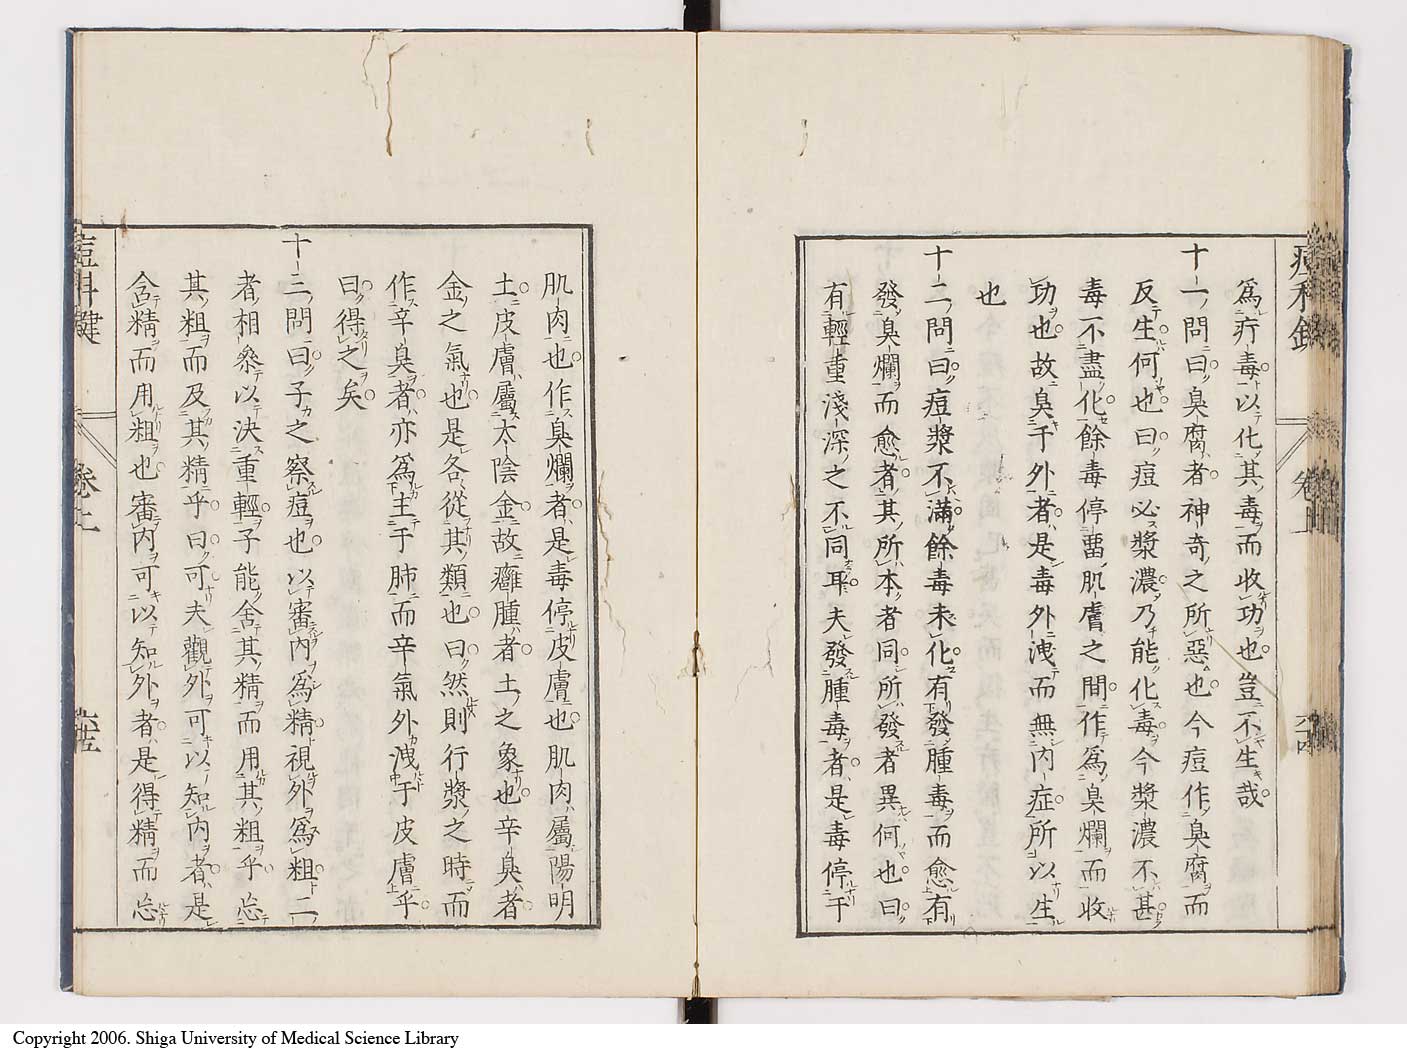 爲疔毒以化其毒而收功也豈不生哉
十一問曰臭腐者神奇之所惡也今痘作臭腐而
反生何也曰痘必漿濃乃能化毒今漿濃不甚
毒不盡化餘毒停畱肌膚之間作爲臭爛而收
功也故臭于外者是毒外洩而無内症所以生
也
十二問曰痘漿不滿餘毒未化有發腫毒而愈有
發臭爛而愈者其所本者同所發者異何也曰
有輕重淺深之不同耳夫發腫毒者是毒停于
肌肉也作臭爛者是毒停皮膚也肌肉屬陽明
土皮膚屬太陰金故癰腫者土之象也辛臭者
金之氣也是各從其類也曰然則行漿之時而
作辛臭者亦爲主于肺而辛氣外洩于皮膚乎
曰得之矣
十三問曰子之察痘也以審内爲精視外爲粗二
者相叅以決重輕子能舍其精而用其粗乎忘
其粗而及其精乎曰可夫觀外可以知内者是
含精而用粗也審内可以知外者是得精而忘
痘科鍵
卷上
六十五
卷上
Copyright 2006. Shiga University of Medical Science Library